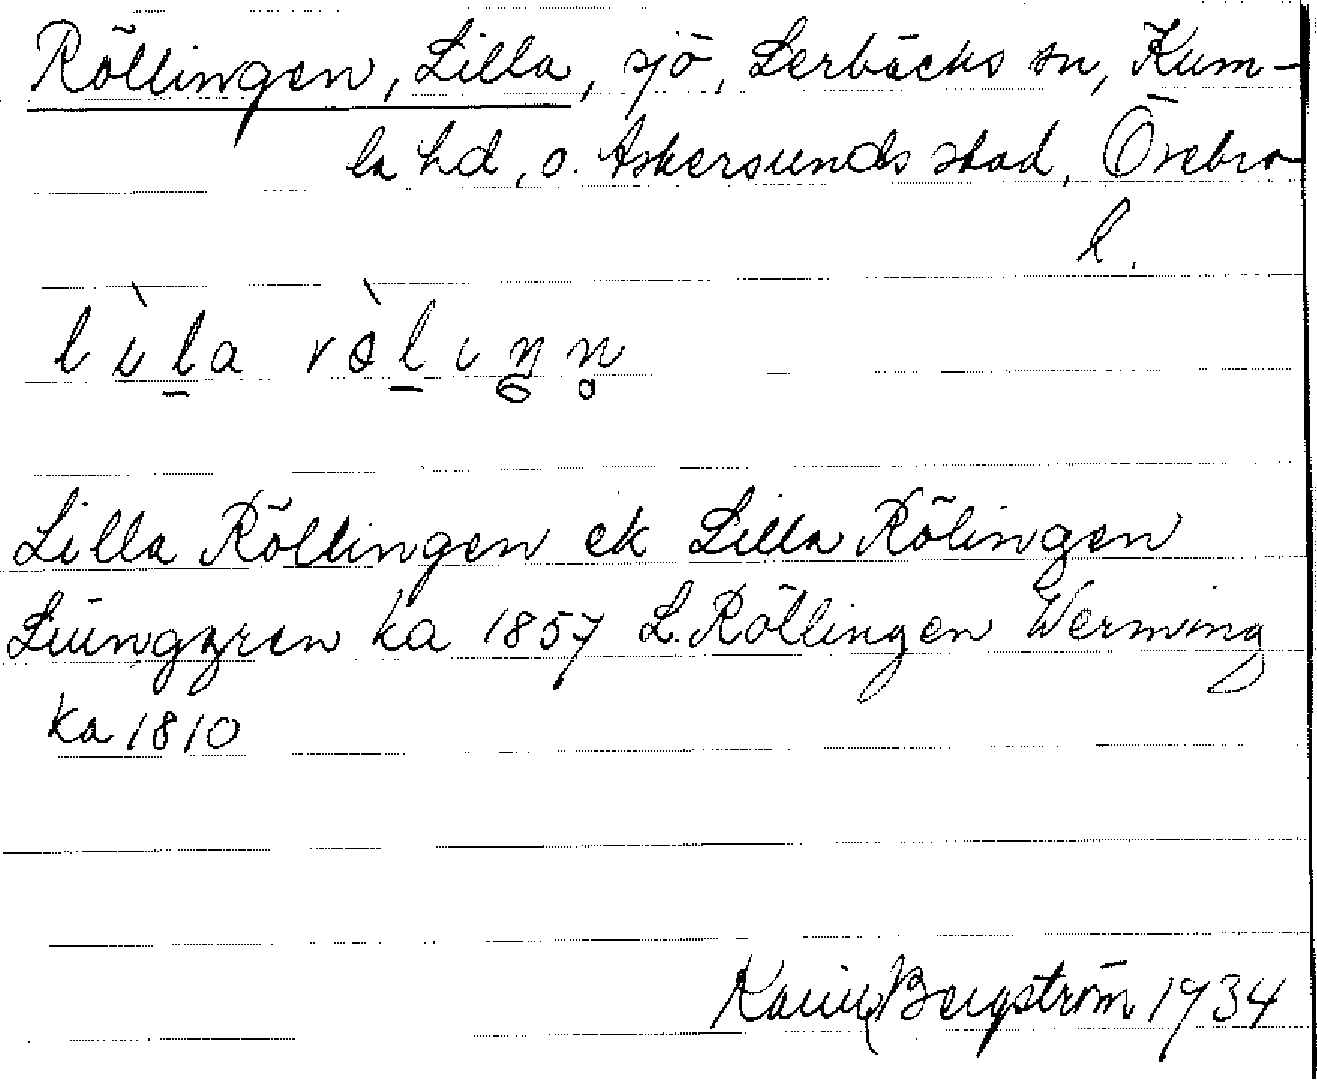 Röllingen, Lilla, sjö, Lerbäcks sn, Kum-
la hd, o. Askersunds stad, Örebro
l.
lìla rö̀lıŋn̥
Lilla Röllingen ek Lilla Rölingen
Liunggren ka 1857 L. Röllingen Werming
ka 1810
Karin Bergström 1934